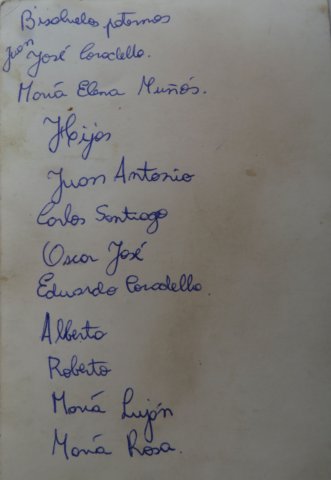 Bisabuelos paternos
Juan José Coradello.
María Elena Muñós.
Hijos
Juan Antonio
Carlos Santiago
Oscar José
Eduardo Coradello.
Alberto
Roberto
María Luján
María Rosa.